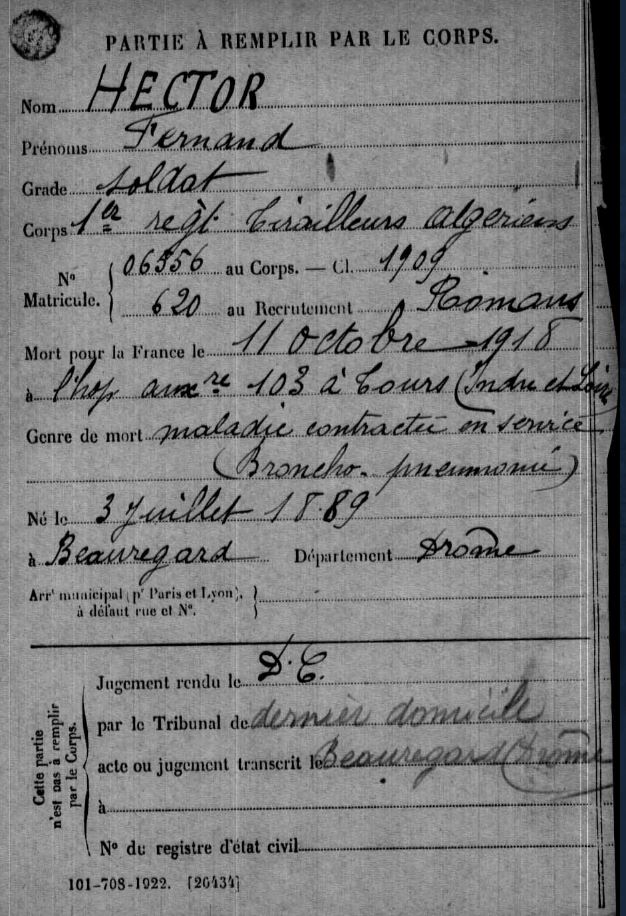 PARTIE À REMPLIR PAR LE CORPS.
Nom HECTOR
Prénoms Fernand
Grade soldat
Corps 1er régt tirailleurs algeriens
Nº Matricule. { 06556 au Corps. — Cl. 1909
620 au Recrutement Romans
Mort pour la France le 11 Octobre 1918
à l'hop auxre 103 à Tours (Indre et Loire)
Genre de mort maladie contractée en service
(Broncho-pneumonie)
Né le 3 Juillet 1889
à Beauregard Département Drôme
Arrt municipal (pr Paris et Lyon), }
à défaut rue et Nº.
Cette partie n'est pas à remplir par le Corps.
Jugement rendu le D.C.
par le Tribunal de dernier domicile
acte ou jugement transcrit le Beauregard (Drôme
à
Nº du registre d'état civil
101-708-1922. [26434]